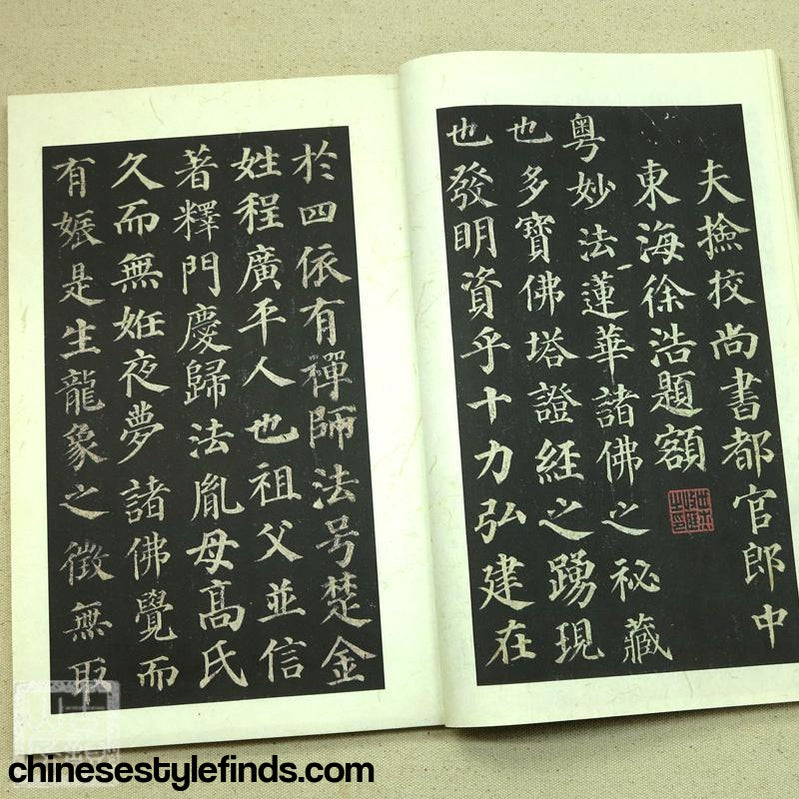 夫撿挍尚書都官郎中
東海徐浩題額
粤妙法蓮華諸佛之祕藏
也多寶佛塔證經之踴現
也發明資乎十力弘建在
扵四依有禪師法号楚金
姓程廣平人也祖父並信
著釋門慶歸法胤母高氏
久而無姙夜夢諸佛覺而
有娠是生龍象之徵無取
chinesestylefinds.com